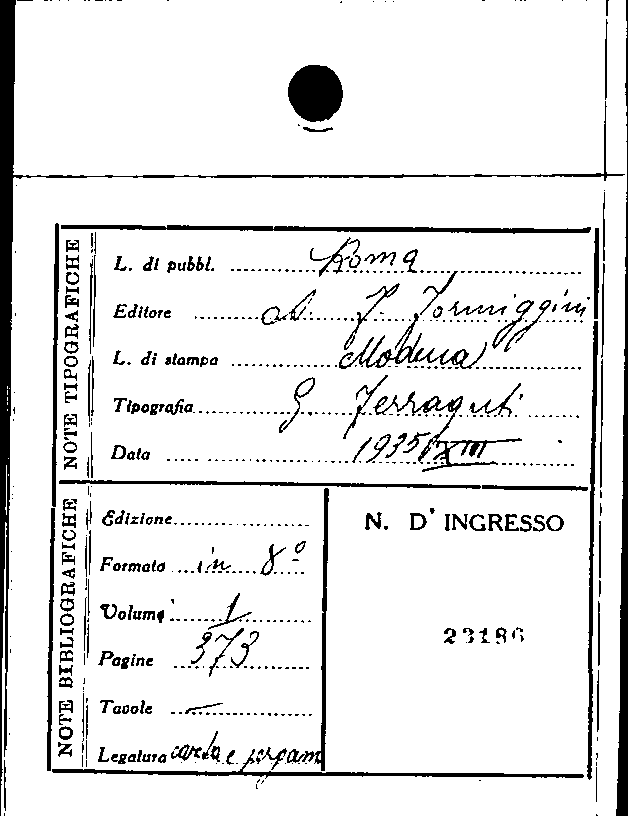 NOTE TIPOGRAFICHE
L. di pubbl. Roma
Editore A. F. Formiggini
L. di stampa Modena
Tipografia G. Ferraguti
Data 1935 XIII
NOTE BIBLIOGRAFICHE
Edizione
Formato in 8º
Volumi 1
Pagine 373
Tavole —
Legatura carta e pergam
N. D' INGRESSO
23186